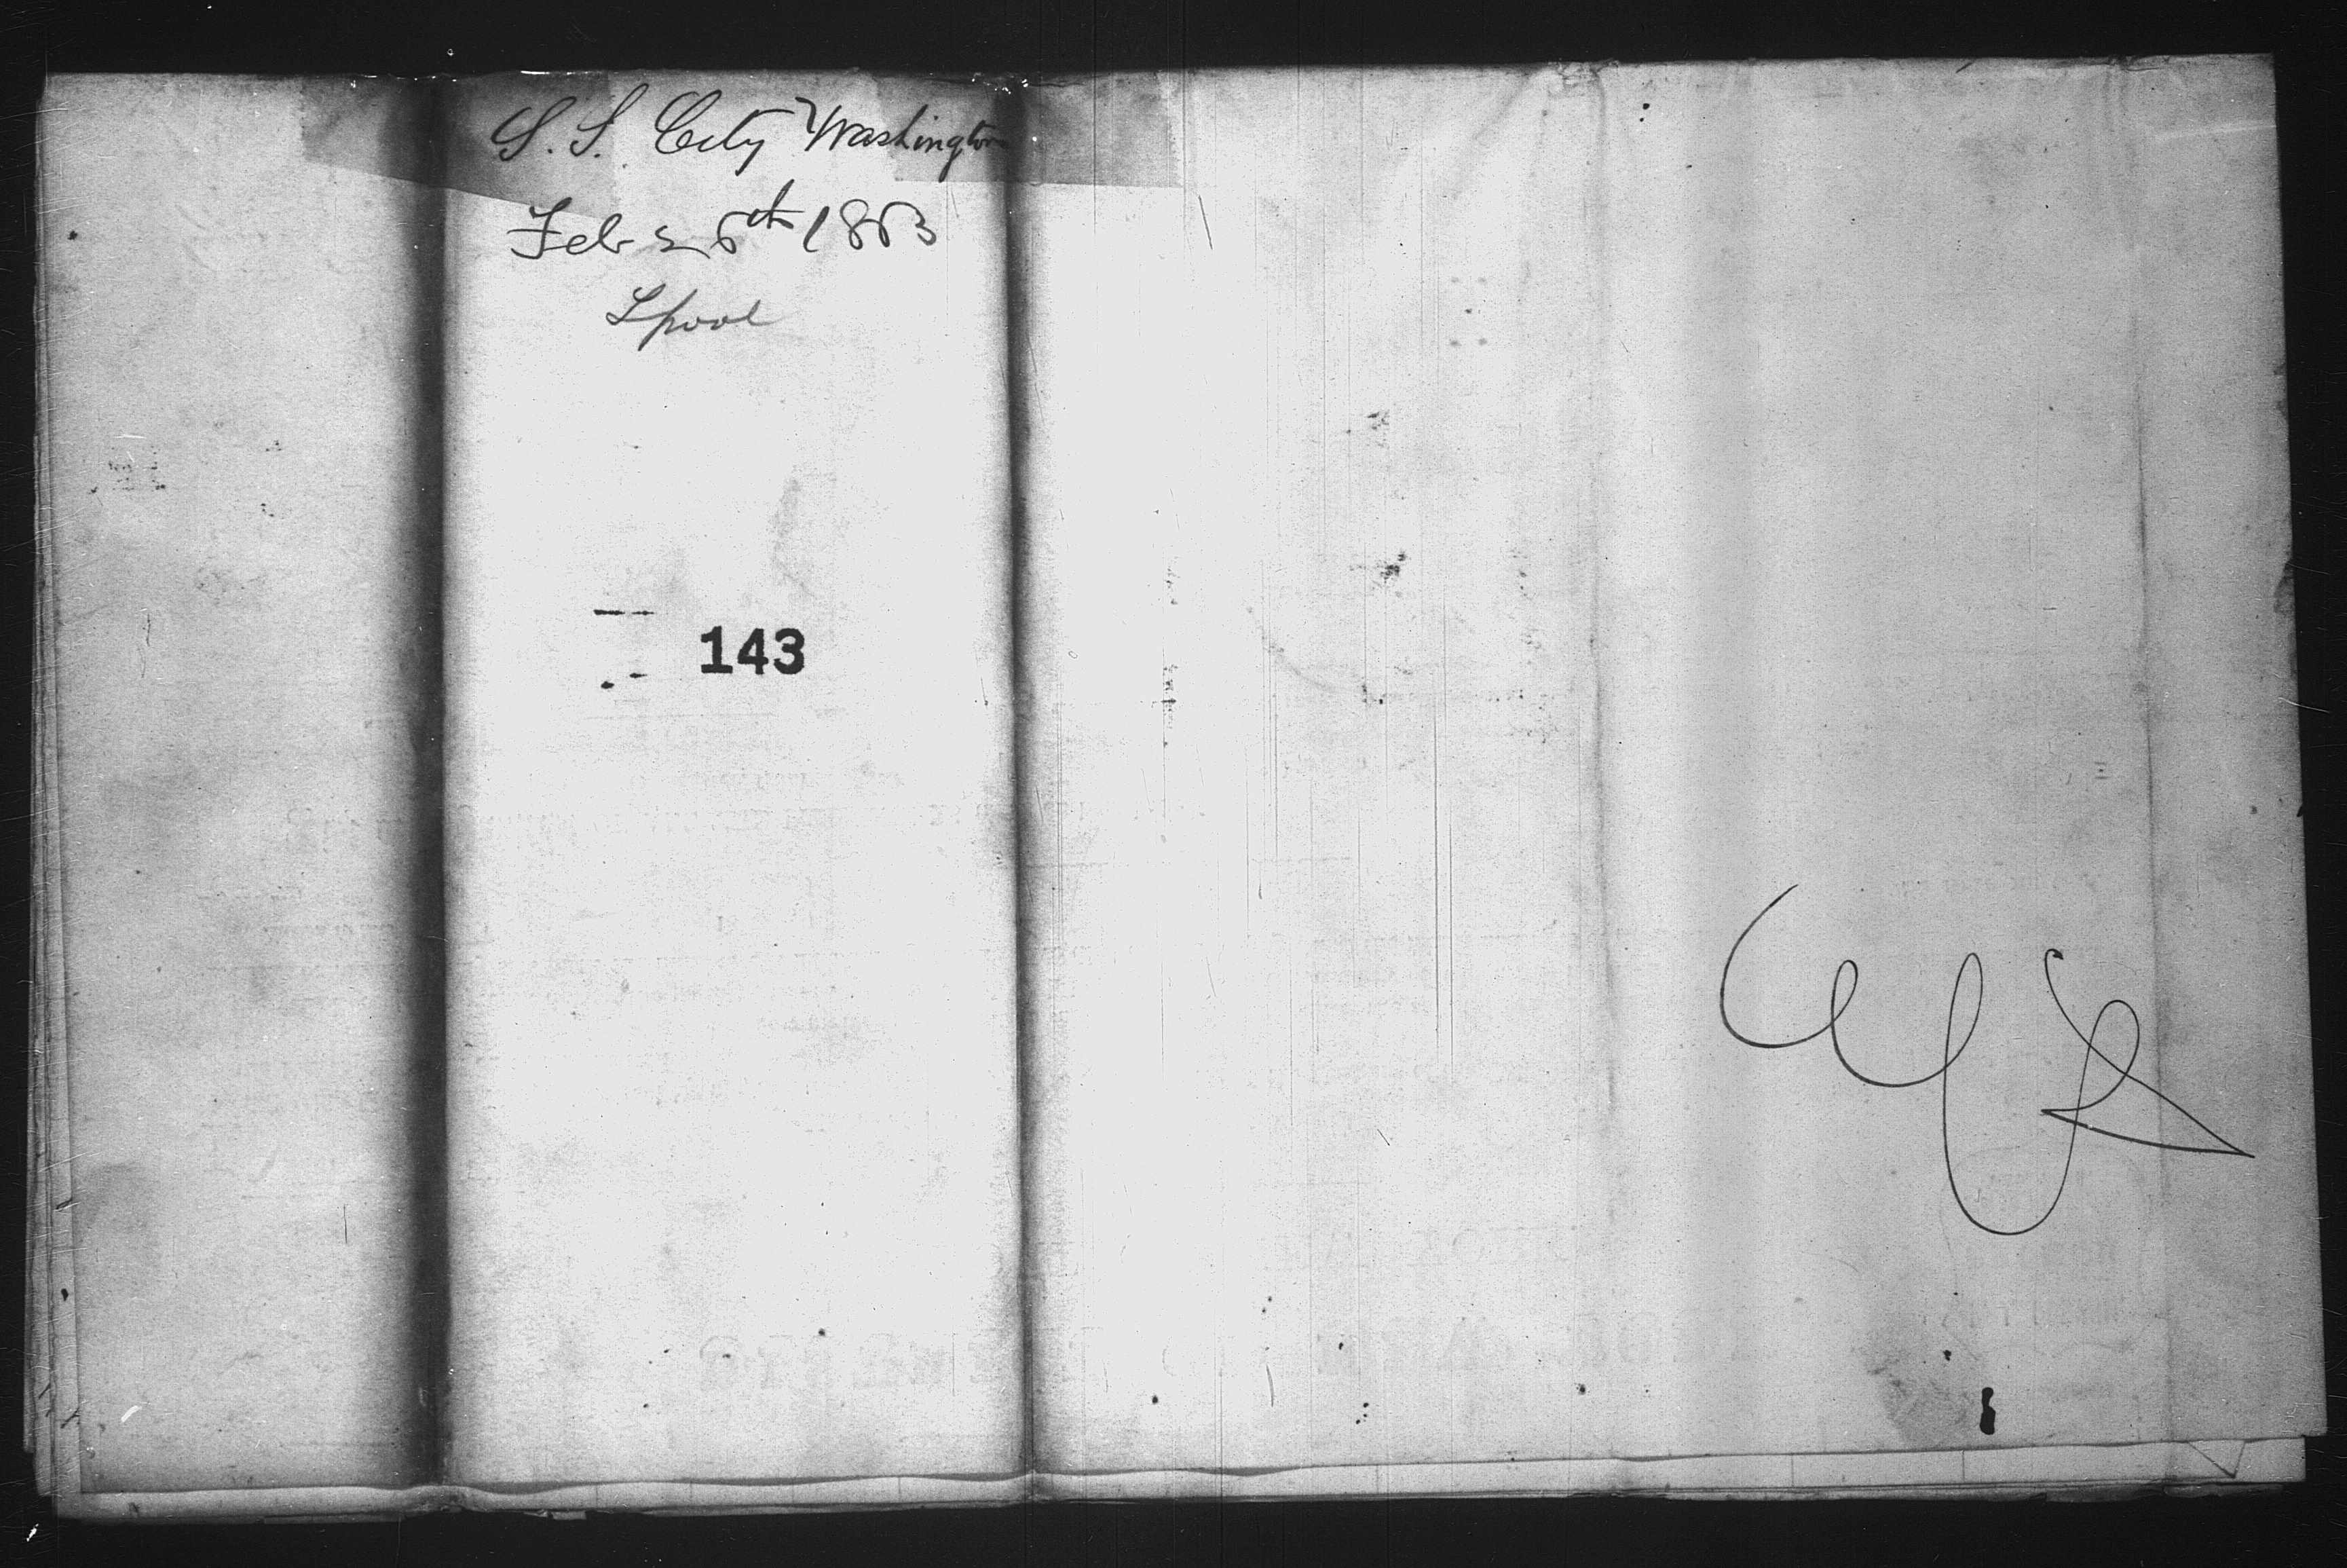 S. S. City Washington
Feb 26th 1863
Lpool
143